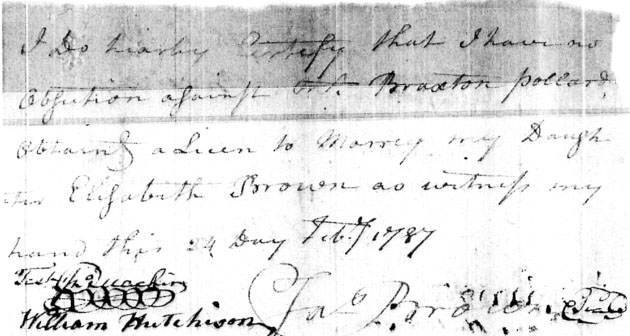 I Do hearby Certify that I have no
Objiction against Mr. Braxton pollard
Obtaing a Licen to Marrey my Daugh
ter Elisabeth Brown as witness my
hand this 24 Day Feby. 1787
Test
William Hutchison Jas Brown